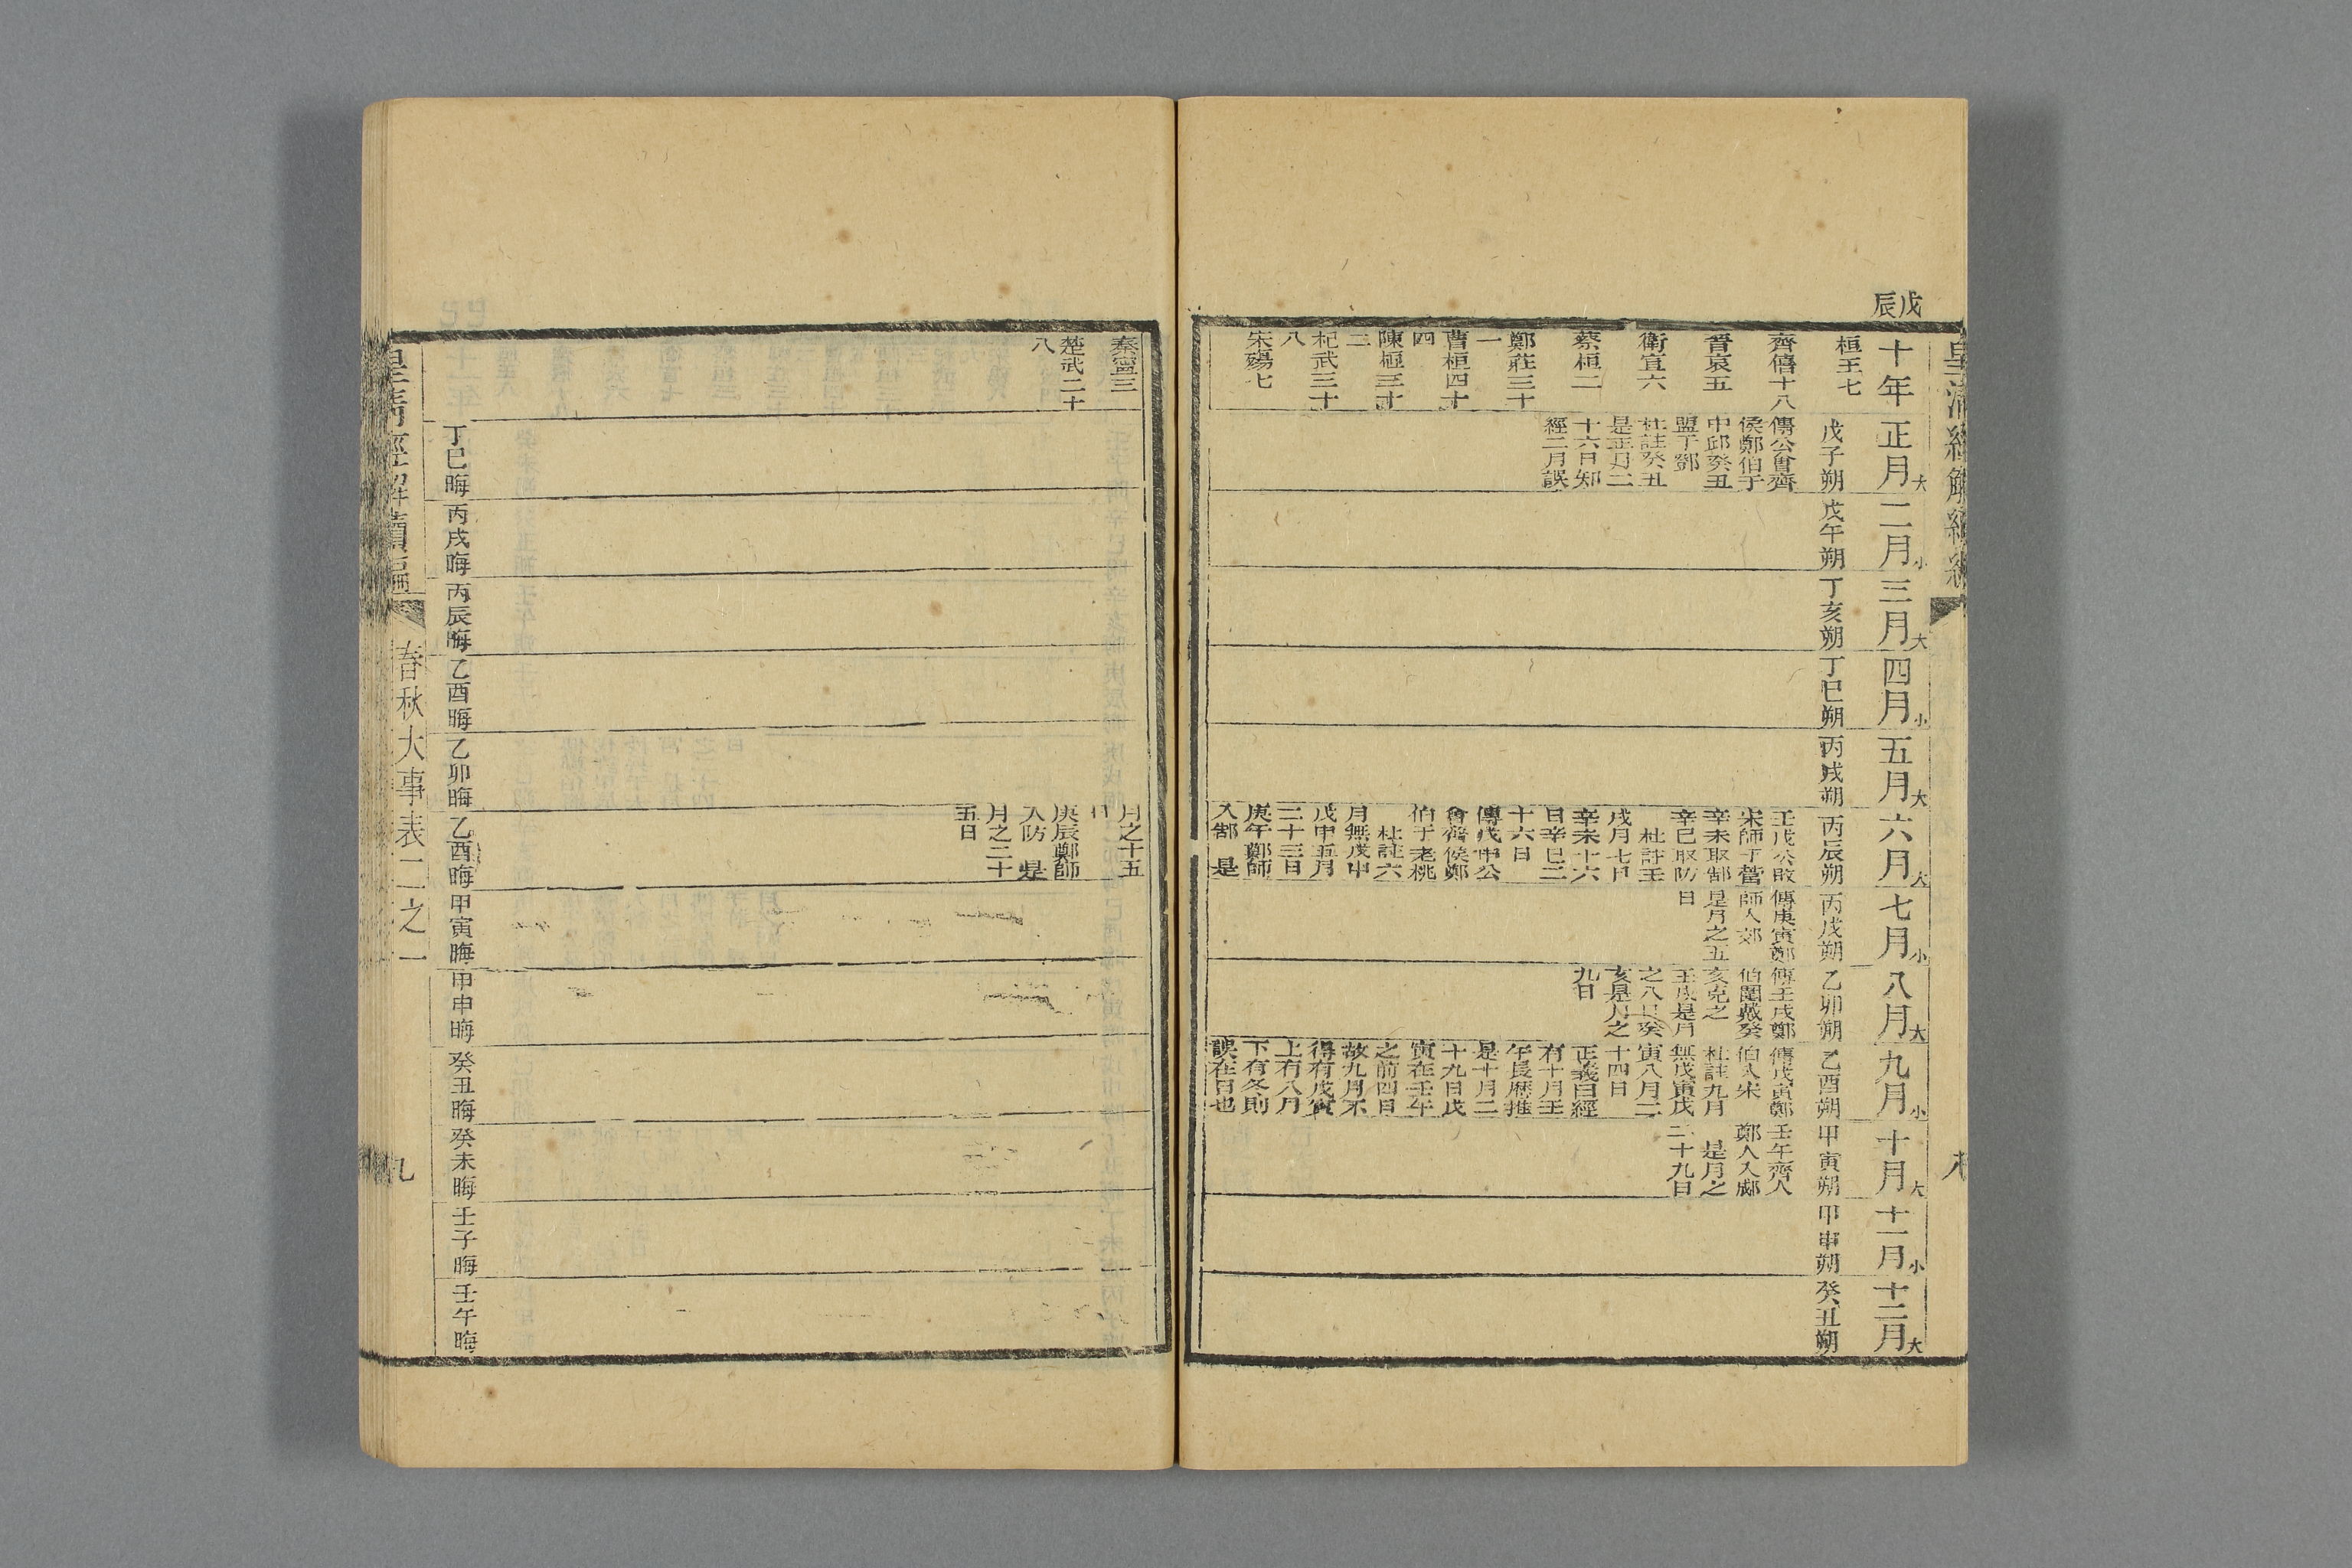 戊辰
十年
桓王七
齊僖十八
晉哀五
衛宣六
蔡桓二
鄭莊三十
一
曹桓四十
四
陳桓三十
二
杞武三十
八
宋殤七
秦寧三
楚武二十
八
正月大
戊子朔
傳公會齊
侯鄭伯于
中邱癸丑
盟于鄧
杜註癸丑
是正月二
十六日知
經二月誤
丁巳晦
二月小
戊午朔
丙戌晦
三月大
丁亥朔
丙辰晦
四月小
丁巳朔
乙酉晦
五月大
丙戌朔
乙卯晦
六月大
丙辰朔
壬戌公敗
宋師于菅
辛未取郜
辛巳取防
杜註壬
戌月七日
辛未十六
日辛巳二
十六日
傳戊申公
會齊侯鄭
伯于老桃
杜註六
月無戊申
戊申五月
二十三日
庚午鄭師
入郜 是
月之十五
日
庚辰鄭師
入防 是
月之二十
五日
乙酉晦
七月小
丙戌朔
傳庚寅鄭
師入郊
是月之五
日
甲寅晦
八月大
乙卯朔
傳壬戌鄭
伯圍戴癸
亥克之
壬戌是月
之八日癸
亥是月之
九日
甲申晦
九月小
乙酉朔
傳戊寅鄭
伯入宋
杜註九月
無戊寅戊
寅八月二
十四日
正義曰經
有十月壬
午長歷推
是十月二
十九日戊
寅在壬午
之前四日
故九月不
得有戊寅
上有八月
下有冬則
誤在日也
癸丑晦
十月大
甲寅朔
壬午齊人
鄭人入郕
是月之
二十九日
癸未晦
十一月小
甲申朔
壬子晦
十二月大
癸丑朔
壬午晦
皇清經解續編
春秋大事表二之一
九